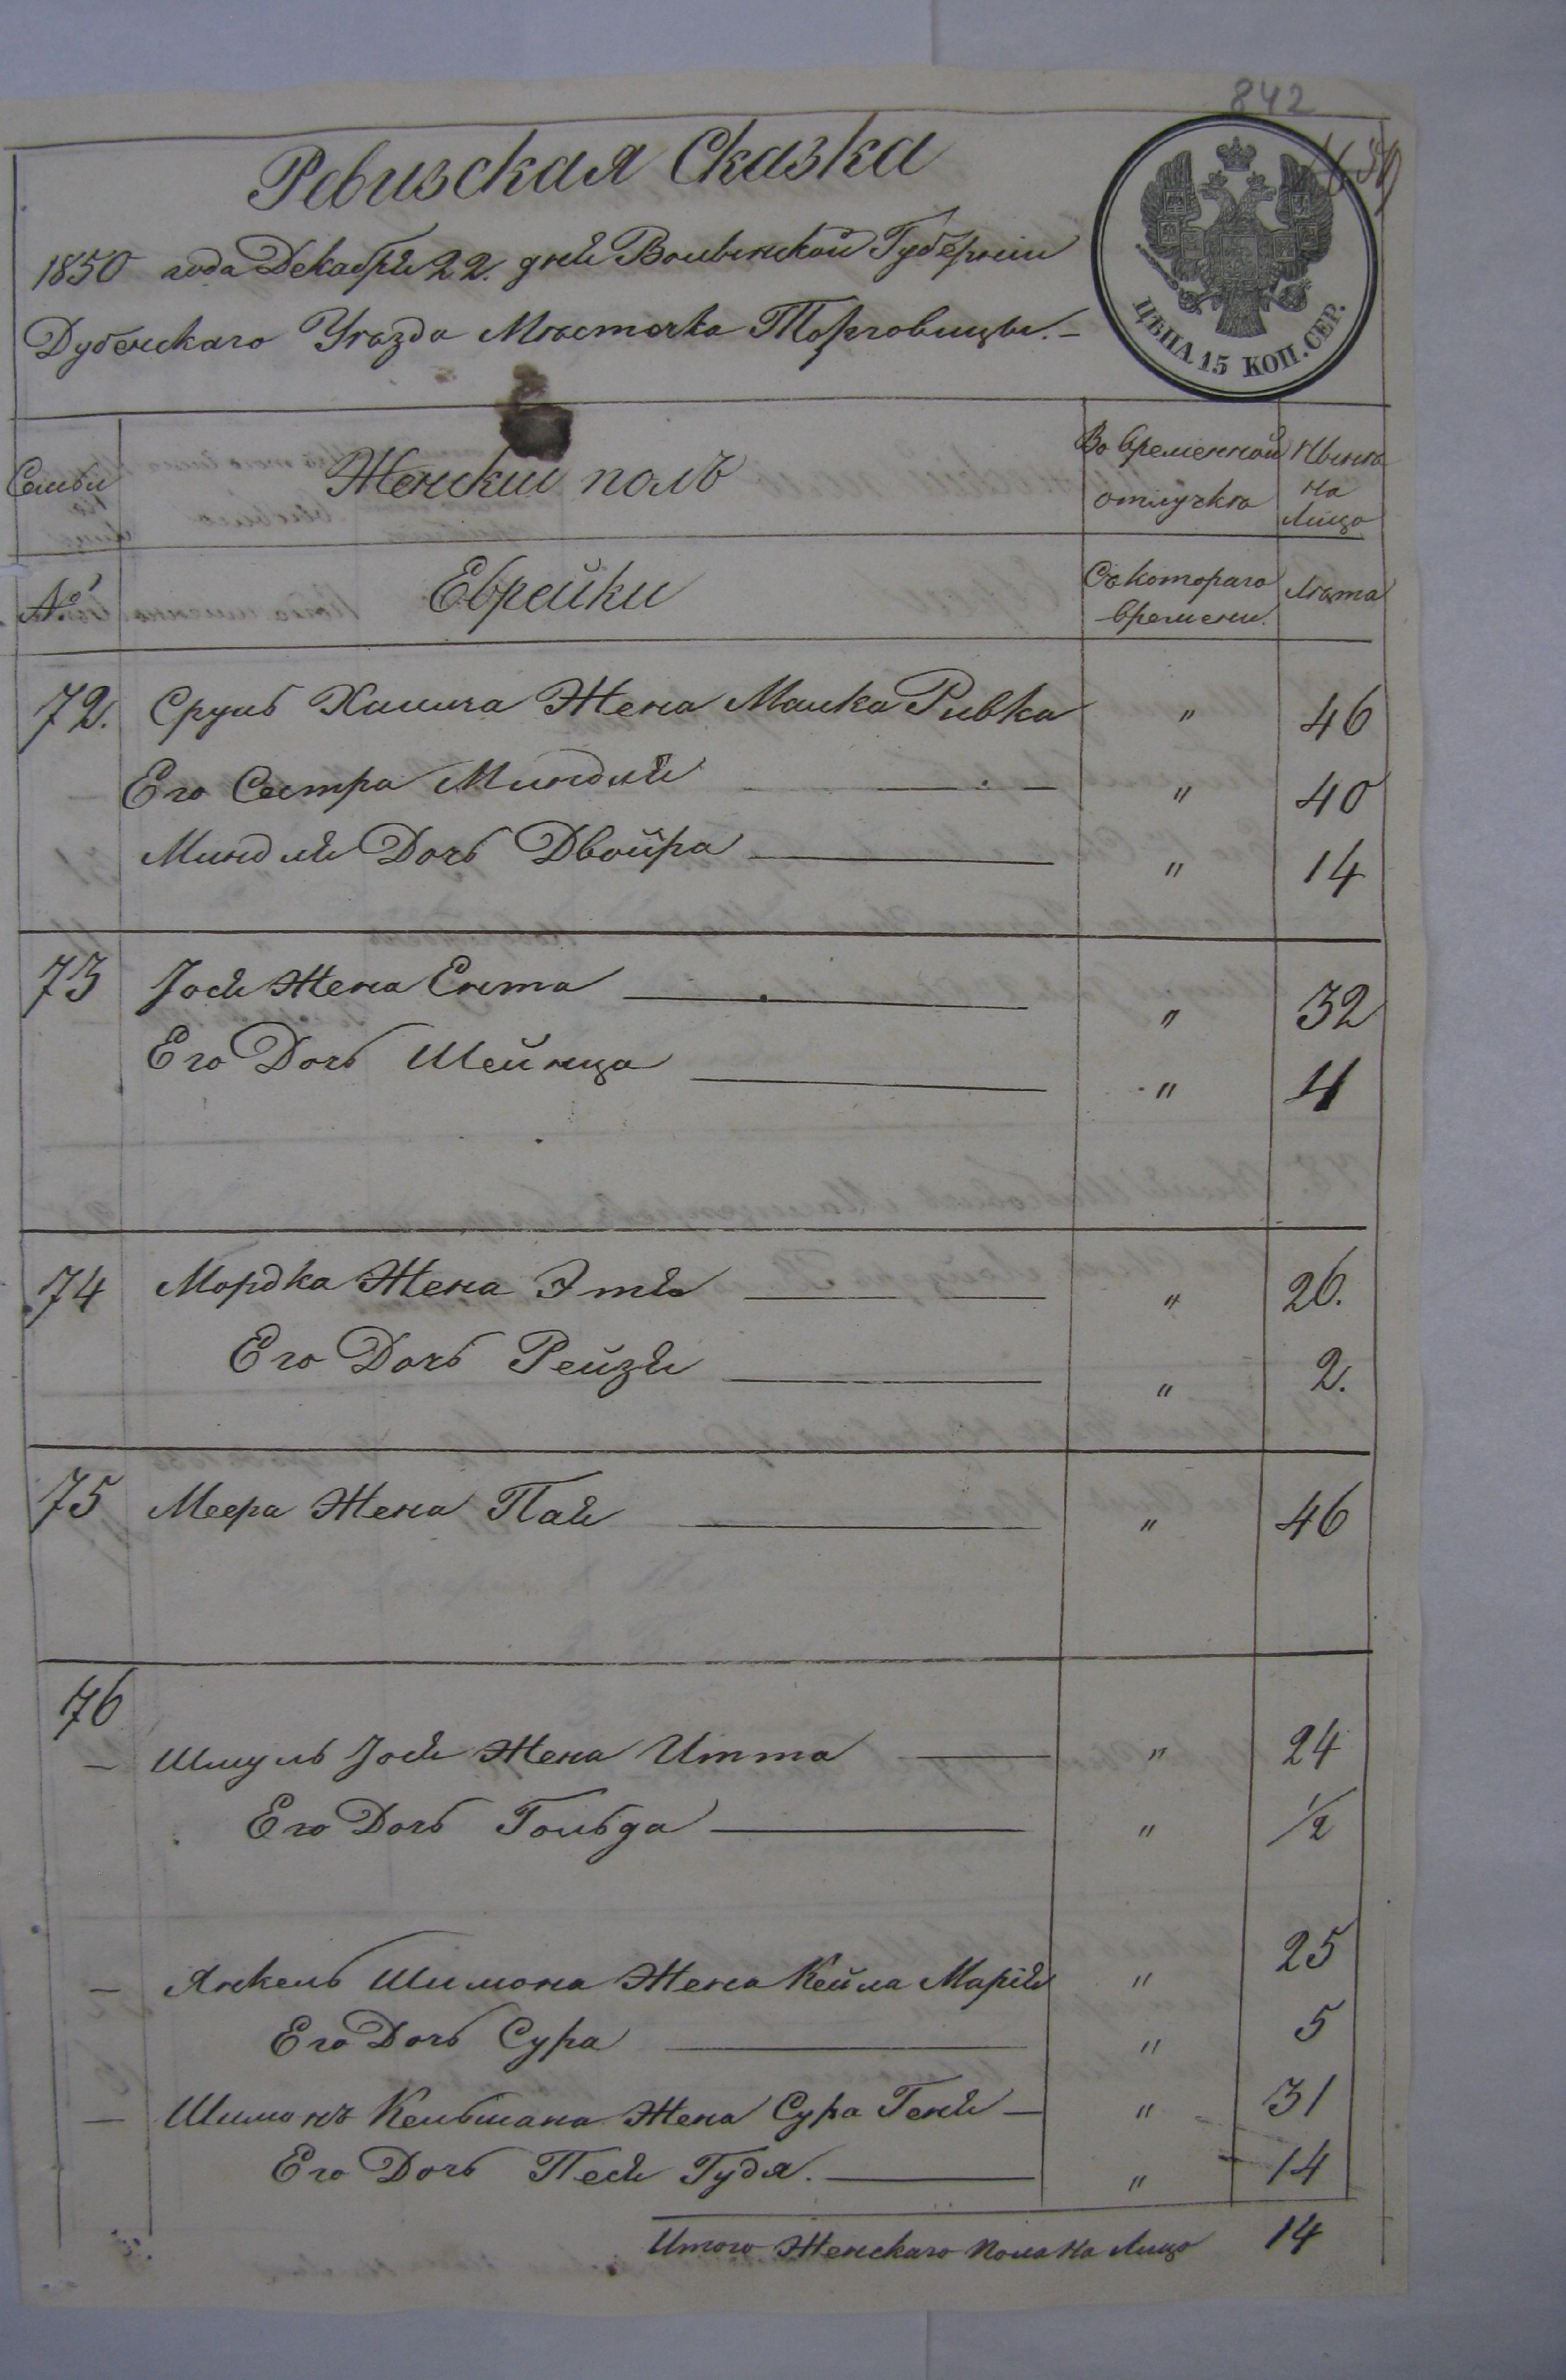 842
Ревизская Сказка
1850 года Декабря 22. дня Волынской Губерніи
Дубенскаго Уѣзда Мѣстечка Торговицы.-
ЦѢНА 15 КОП. СЕР.
Семьи
Женский полъ
Во временной отлучкѣ
Нынѣ на лицо
№
Еврейки
Съ котораго времени.
Лѣта
72. Сруль Хаима Жена Малка Ривка " 46
Его Сестра Миндля " 40
Миндли Дочь Двойра " 14
73 Іося Жена Ента " 32
Его Дочь Шейнца " 4
74 Мордка Жена Этя " 26.
Его Дочь Рейзя " 2.
75 Меера Жена Пая " 46
76
— Шмуль Іося Жена Итта — " 24
Его Дочь Гольда " 1/2
— Янкель Шимона Жена Кейла Марія " 25
Его Дочь Сура " 5
— Шимонъ Кельмана Жена Сура Геня — " 31
Его Дочь Песя Гудя. " 14
Итого Женскаго пола на Лицо 14